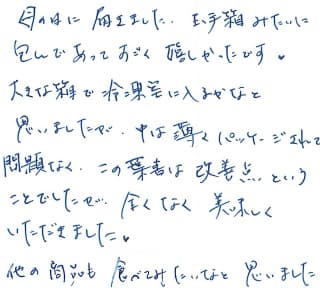 母の日に届きました。玉手箱みたいに
包んであってすごく嬉しかったです。
大きな箱で冷凍室に入るかなと
思いましたが、中は薄くパッケージされて
問題なく、この葉書は改善点という
ことでしたが、全くなく美味しく
いただきました。
他の商品も食べてみたいなと思いました